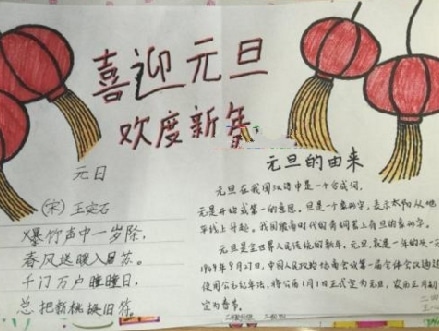 喜迎元旦
欢度新年
元日
(宋) 王安石
爆竹声中一岁除,
春风送暖入屠苏。
千门万户曈曈日,
总把新桃换旧符。
元旦的由来
元旦在我国汉语中是一个合成词,
元是开始或第一的意思。旦是一个象形字,表示太阳从地
平线上升起。我国殷商时代铜器铭上有旦的象形字。
元旦是全世界人民传统的新年。元旦,就是一年的第一
1949年9月27日,中国人民政治协商会议第一届全体会议通过
使用公元纪年法,将公历1月1日正式定为元旦,农历正月初
定为春节。